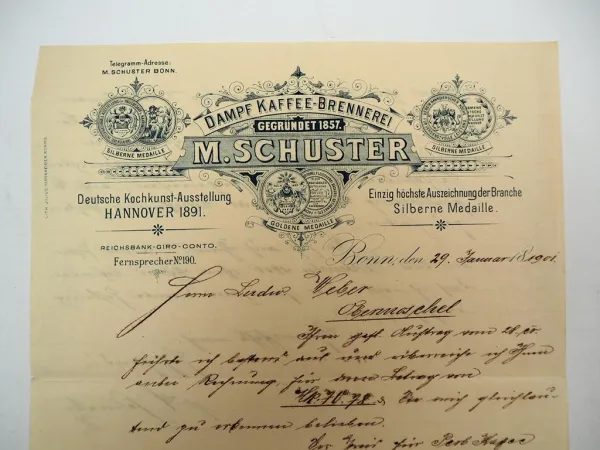 Telegramm-Adresse:
M. SCHUSTER BONN.
DAMPF KAFFEE-BRENNEREI
GEGRÜNDET 1857.
M. SCHUSTER
SILBERNE MEDAILLE
SILBERNE MEDAILLE
GOLDENE MEDAILLE
Deutsche Kochkunst-Ausstellung
HANNOVER 1891.
Einzig höchste Auszeichnung der Branche
Silberne Medaille.
REICHSBANK-GIRO-CONTO.
Fernsprecher No 190.
Bonn, den 29. Januar 1901.
Herrn Weber
Obermoschel
Ihren gefl. Auftrag vom 28. cr.
führte ich bestens aus und überreiche ich Ihnen
anbei Rechnung für deren Betrag von
Mk. 70.78
Sie mich gleichlau-
tend zu erkennen belieben.
Der Preis für Perl Kaffee